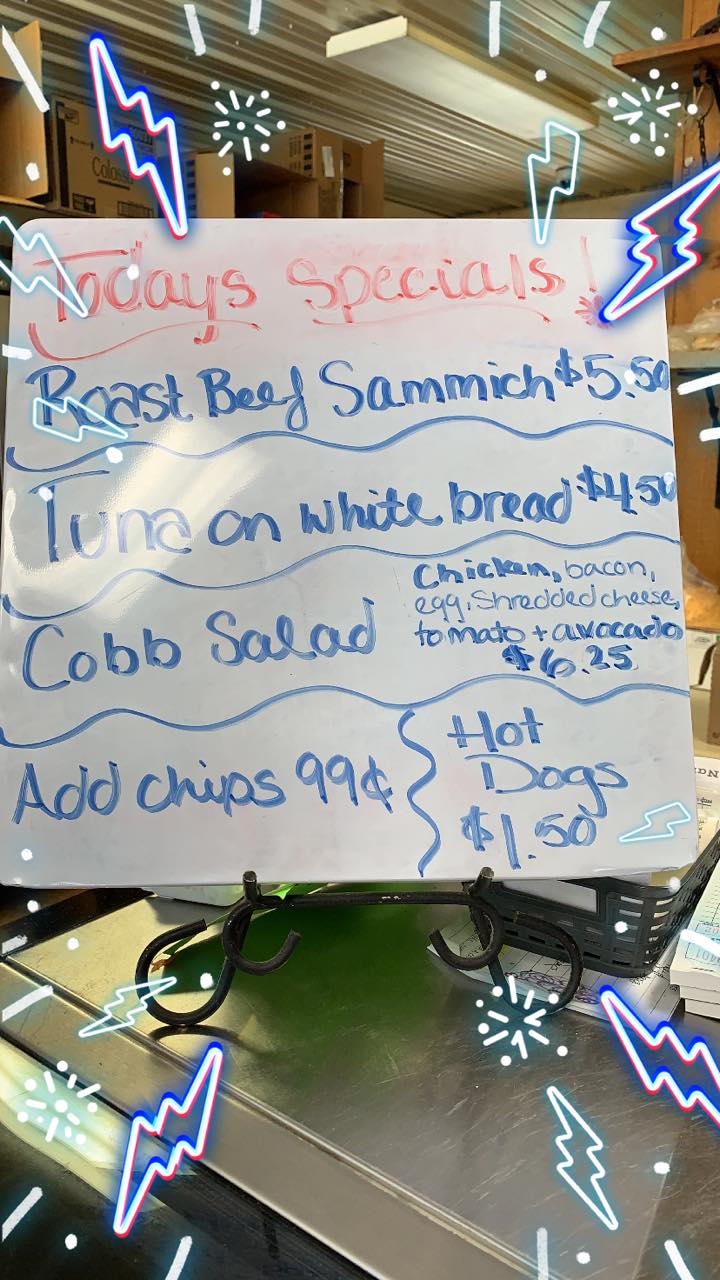 Todays Specials!
Roast Beef Sammich $5.50
Tuna on white bread $4.50
Cobb Salad
Chicken, bacon,
egg, Shredded cheese,
tomato + avacado
$6.25
Add chips 99¢
Hot
Dogs
$1.50